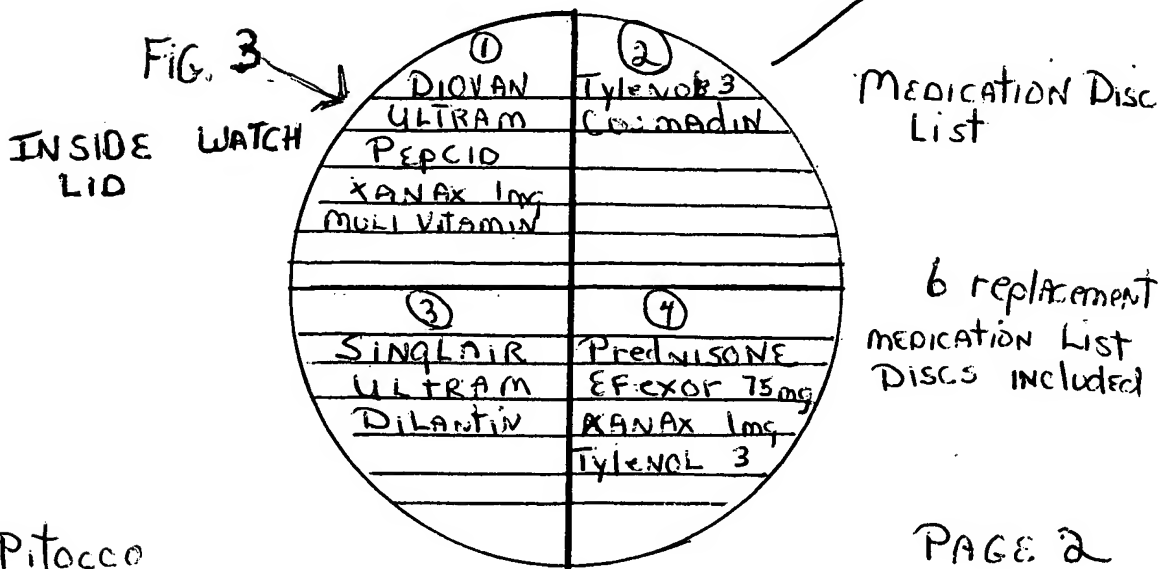 FIG. 3
INSIDE WATCH
LID
①
DIOVAN
ULTRAM
PEPCID
XANAX 1mg
MULI VITAMIN
②
TyleNOL 3
COUMADIN
③
SINGLAIR
ULTRAM
DILANTIN
④
PredNISONE
EFEXOR 75mg
XANAX 1mg
TyleNOL 3
MEDICATION Disc
List
6 replacement
MEDICATION List
DISCS INCLUDED
Pitocco
PAGE 2